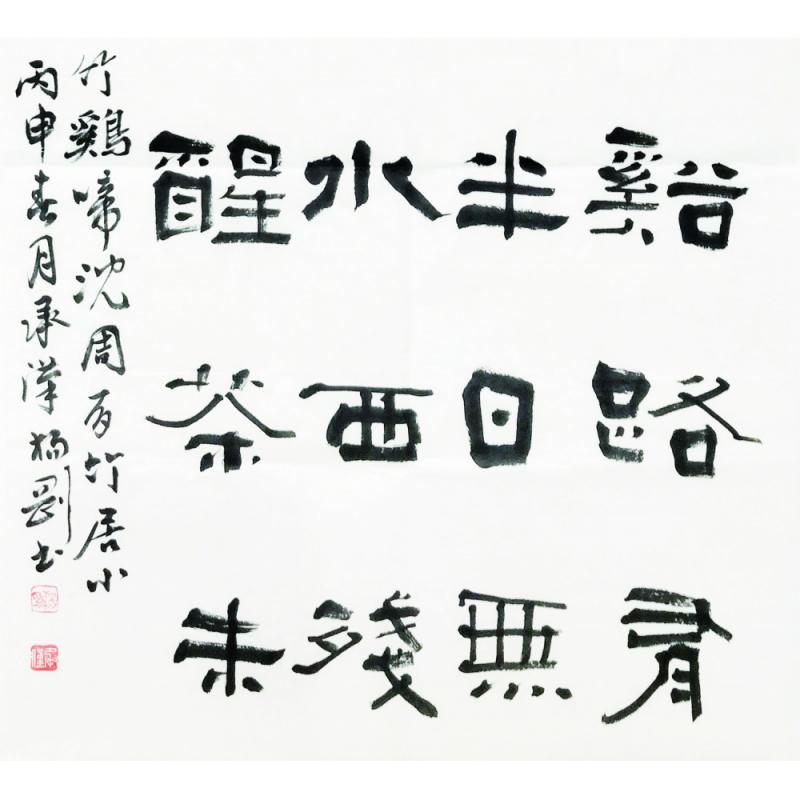 谿路有
半日無
水西殘
醒茶未
竹鷄啼沈周有竹居小
丙申春月承漢楊剛书